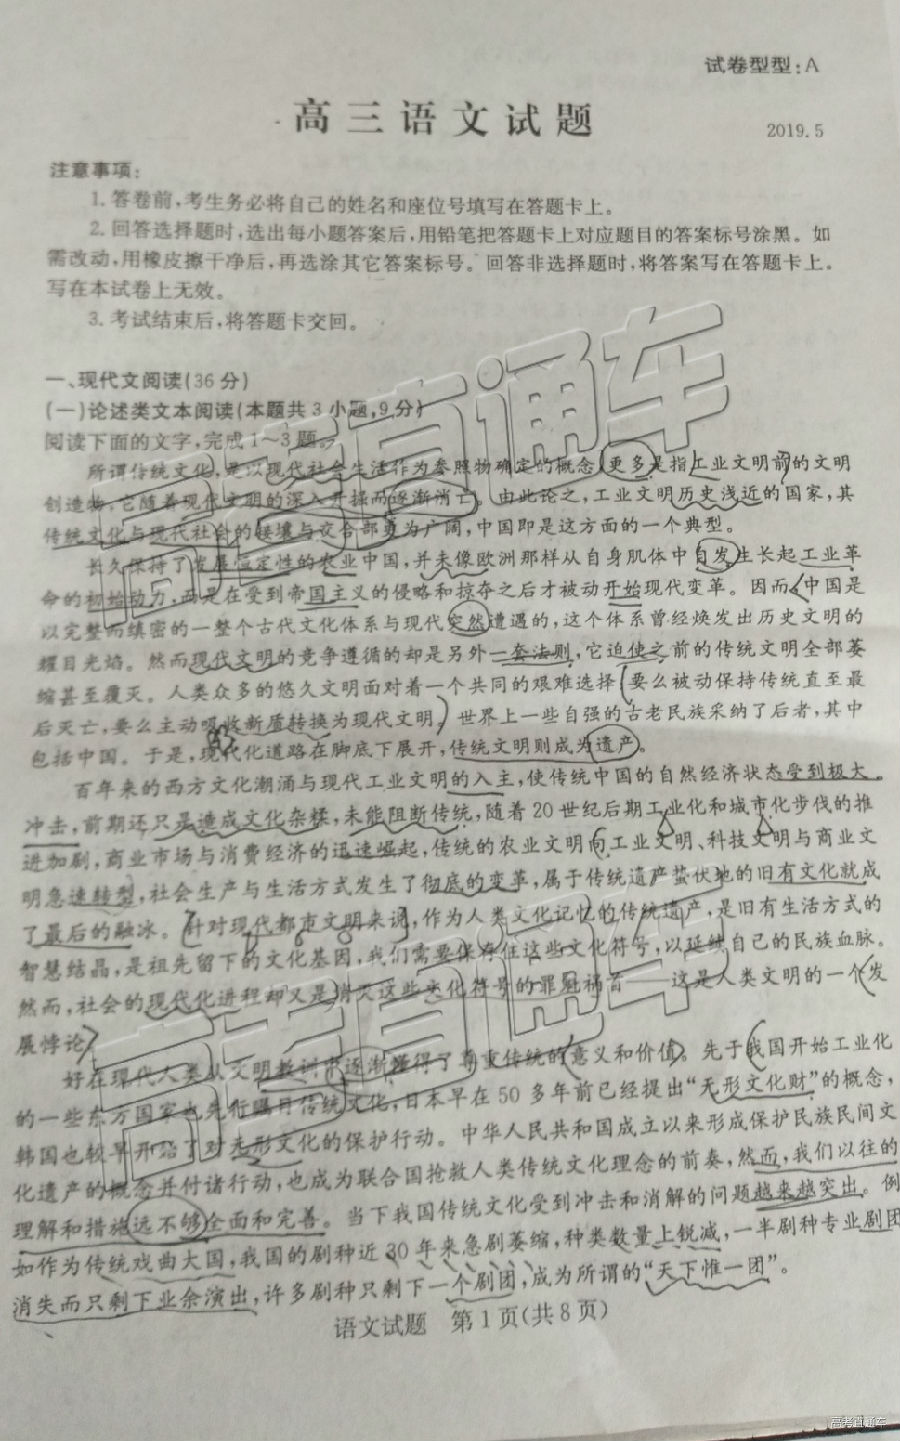 试卷型型:A
高三语文试题
2019.5
注意事项:
1.答卷前,考生务必将自己的姓名和座位号填写在答题卡上。
2.回答选择题时,选出每小题答案后,用铅笔把答题卡上对应题目的答案标号涂黑。如
需改动,用橡皮擦干净后,再选涂其它答案标号。回答非选择题时,将答案写在答题卡上。
写在本试卷上无效。
3.考试结束后,将答题卡交回。
一、现代文阅读(36分)
(一)论述类文本阅读(本题共3小题,9分)
阅读下面的文字,完成1~3题。
所谓传统文化,是以现代社会生活作为参照物确定的概念,更多是指工业文明前的文明
创造物,它随着现代文明的深入开掘而逐渐消亡。由此论之,工业文明历史浅近的国家,其
传统文化与现代社会的接壤与交合部更为广阔,中国即是这方面的一个典型。
长久保持了发展恒定性的农业中国,并未像欧洲那样从自身肌体中自发生长起工业革
命的初始动力,而是在受到帝国主义的侵略和掠夺之后才被动开始现代变革。因而,中国是
以完整而缜密的一整个古代文化体系与现代突然遭遇的,这个体系曾经焕发出历史文明的
耀目光焰。然而现代文明的竞争遵循的却是另外一套法则,它迫使之前的传统文明全部萎
缩甚至覆灭。人类众多的悠久文明面对着一个共同的艰难选择:要么被动保持传统直至最
后灭亡,要么主动吸收新质转换为现代文明。世界上一些自强的古老民族采纳了后者,其中
包括中国。于是,现代化道路在脚底下展开,传统文明则成为遗产。
百年来的西方文化潮涌与现代工业文明的入主,使传统中国的自然经济状态受到极大
冲击,前期还只是造成文化杂糅,未能阻断传统,随着20世纪后期工业化和城市化步伐的推
进加剧,商业市场与消费经济的迅速崛起,传统的农业文明向工业文明、科技文明与商业文
明急速转型,社会生产与生活方式发生了彻底的变革,属于传统遗产蛰伏地的旧有文化就成
了最后的融冰。针对现代都市文明来说,作为人类文化记忆的传统遗产,是旧有生活方式的
智慧结晶,是祖先留下的文化基因,我们需要保存住这些文化符号,以延续自己的民族血脉。
然而,社会的现代化进程却又是消灭这些文化符号的罪魁祸首——这是人类文明的一个发
展悖论。
好在现代人类从文明教训中逐渐懂得了尊重传统的意义和价值。先于我国开始工业化
的一些东方国家也先行瞩目传统文化,日本早在50多年前已经提出“无形文化财”的概念,
韩国也较早开始了对无形文化的保护行动。中华人民共和国成立以来形成保护民族民间文
化遗产的概念并付诸行动,也成为联合国抢救人类传统文化理念的前奏,然而,我们以往的
理解和措施远不够全面和完善。当下我国传统文化受到冲击和消解的问题越来越突出。例
如作为传统戏曲大国,我国的剧种近30年来急剧萎缩,种类数量上锐减,一半剧种专业剧团
消失而只剩下业余演出,许多剧种只剩下一个剧团,成为所谓的“天下惟一团”。
语文试题 第1页(共8页)
高考直通车
高考直通车
高考直通车